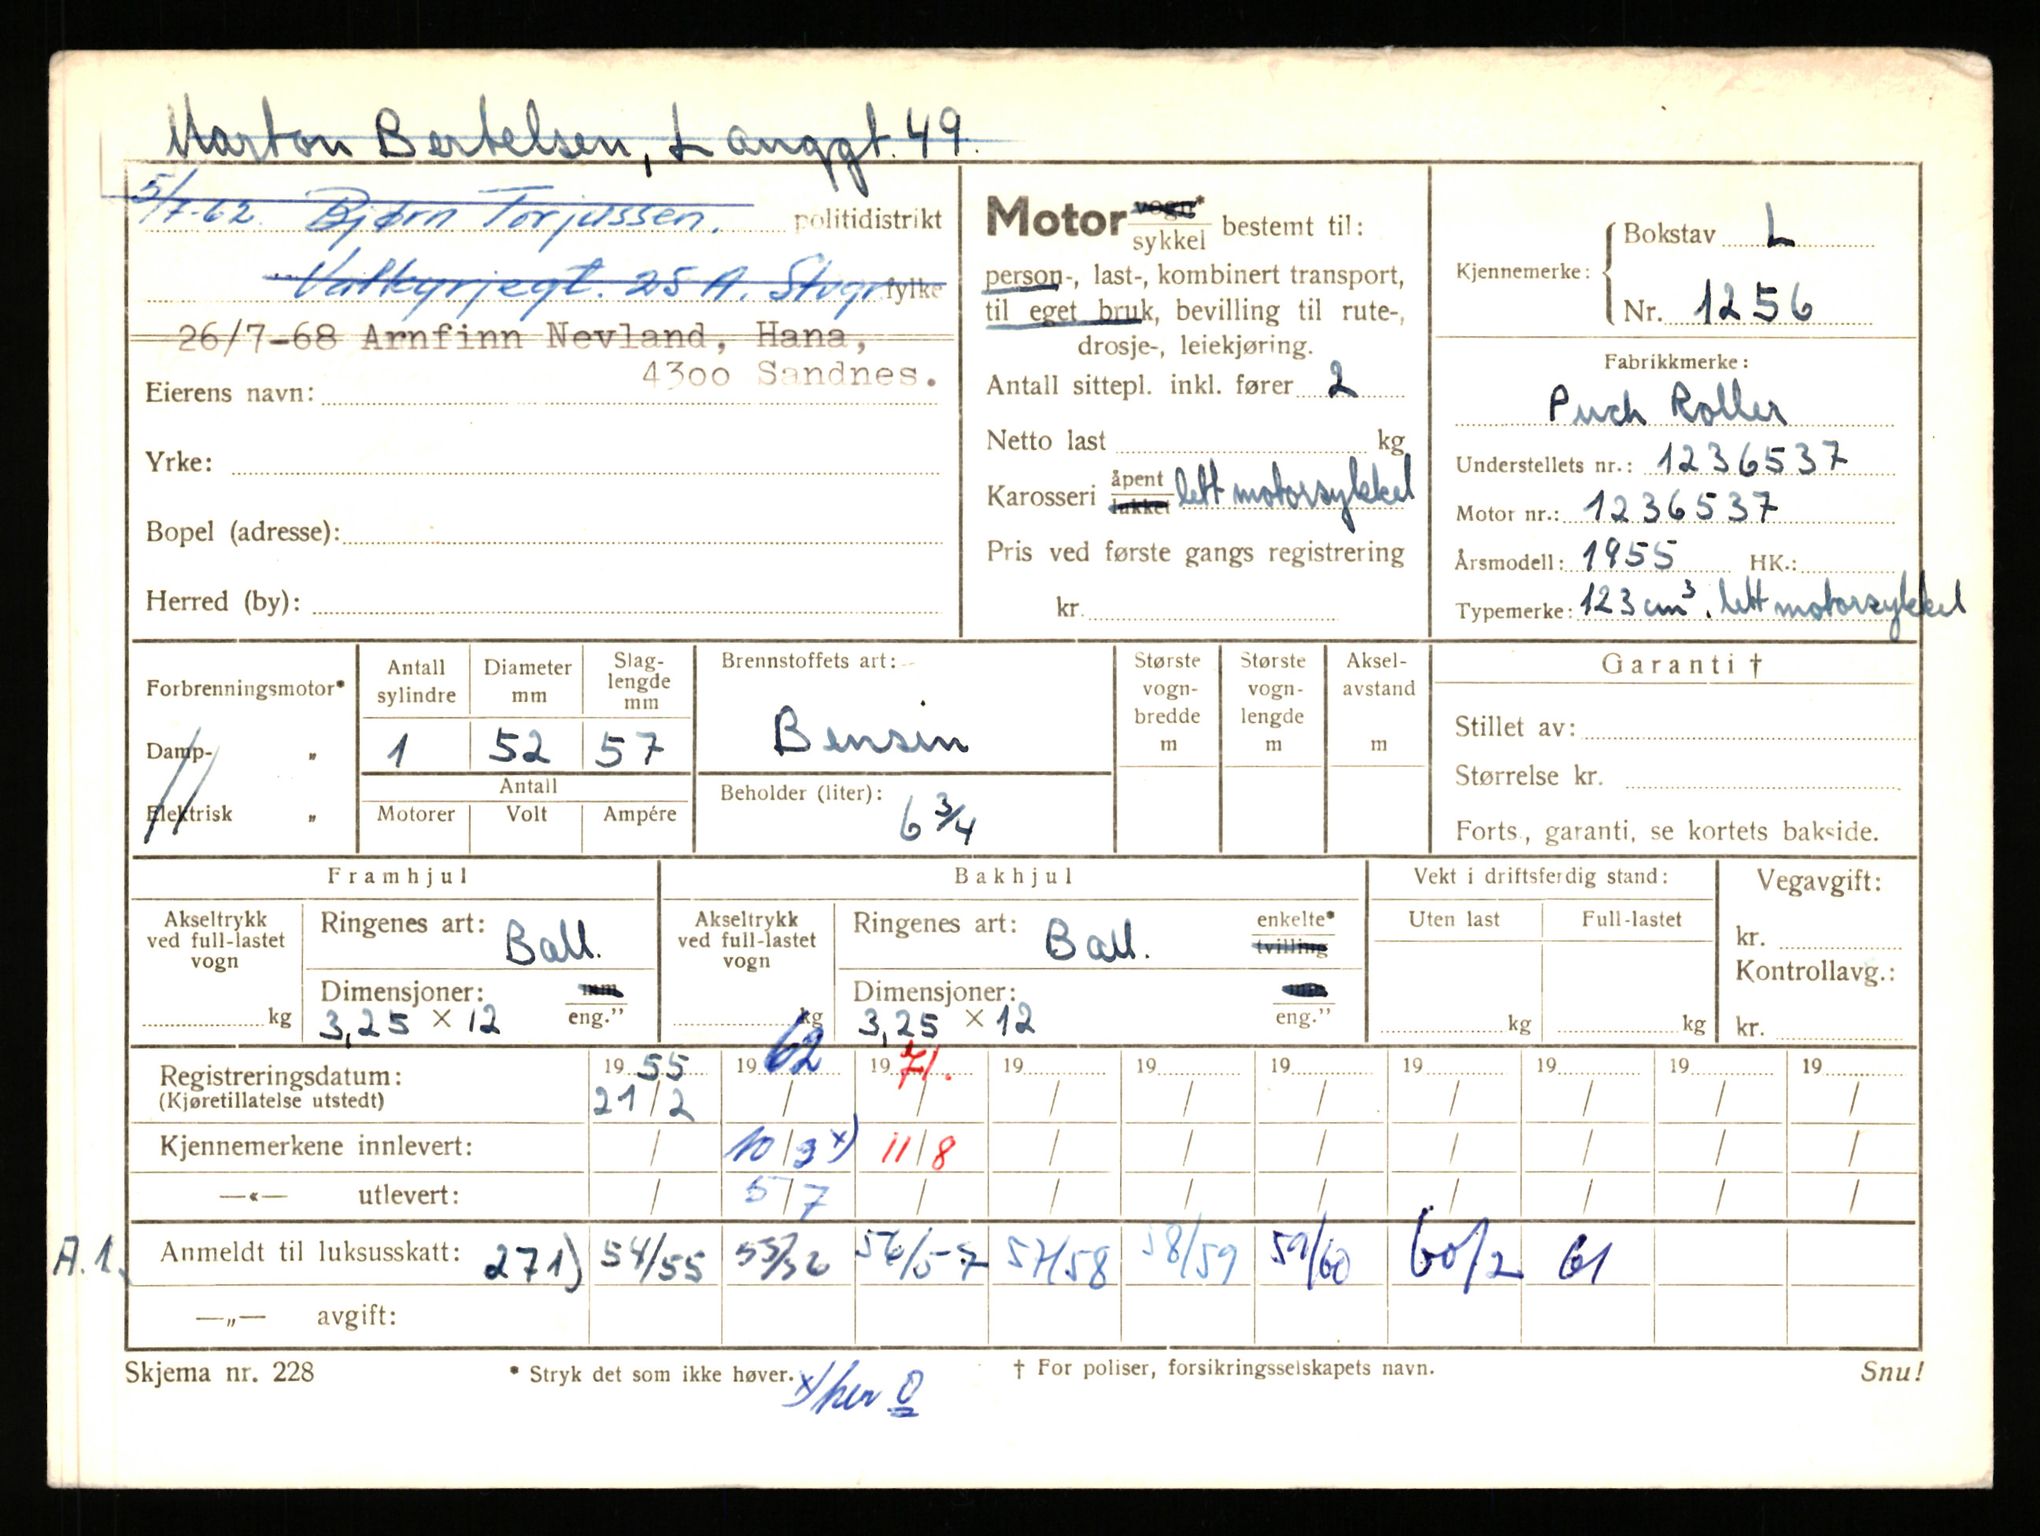 Marton Bertelsen, Langgt. 49.
5/7-62. Bjørn Torjussen. politidistrikt
Valkyrjegt. 25 A. Stvgr fylke
26/7-68 Arnfinn Nevland, Hana,
4300 Sandnes.
Eierens navn:
Yrke:
Bopel (adresse):
Herred (by):
Motor vogn* sykkel bestemt til:
person-, last-, kombinert transport,
til eget bruk, bevilling til rute-,
drosje-, leiekjøring.
Antall sittepl. inkl. fører 2
Netto last kg
Karosseri åpent lukket lett motorsykkel
Pris ved første gangs registrering
kr.
Kjennemerke: Bokstav L
Nr. 1256
Fabrikkmerke:
Puch Roller
Understellets nr.: 1236537
Motor nr.: 1236537
Årsmodell: 1955 HK.:
Typemerke: 123 cm³. lett motorsykkel
Forbrenningsmotor*
Damp- „
Elektrisk „
Antall sylindre Diameter mm Slag-lengde mm
1 52 57
Antall
Motorer Volt Ampére
Brennstoffets art:
Bensin
Beholder (liter):
6 3/4
Største vogn-bredde m
Største vogn-lengde m
Aksel-avstand m
Garanti †
Stillet av:
Størrelse kr.
Forts., garanti, se kortets bakside.
Framhjul
Akseltrykk ved full-lastet vogn
kg
Ringenes art: Ball.
Dimensjoner: mm eng."
3,25 × 12
Bakhjul
Akseltrykk ved full-lastet vogn
kg
Ringenes art: Ball. enkelte* tvilling
Dimensjoner: eng."
3,25 × 12
Vekt i driftsferdig stand:
Uten last Full-lastet
kg kg
Vegavgift:
kr.
Kontrollavg.:
kr.
Registreringsdatum: 19 55 19 62 19 71. 19 19 19 19 19 19 19
(Kjøretillatelse utstedt) 21/2 / / / / / / / / /
Kjennemerkene innlevert: / 10/9 x) 11/8 / / / / / / /
—«— utlevert: / 5/7 / / / / / / / /
A.1. Anmeldt til luksusskatt: 271) 54/55 55/56 56/57 57/58 58/59 59/60 60/2 61
—„— avgift:
Skjema nr. 228 * Stryk det som ikke høver. † For poliser, forsikringsselskapets navn. Snu!
x) her 0